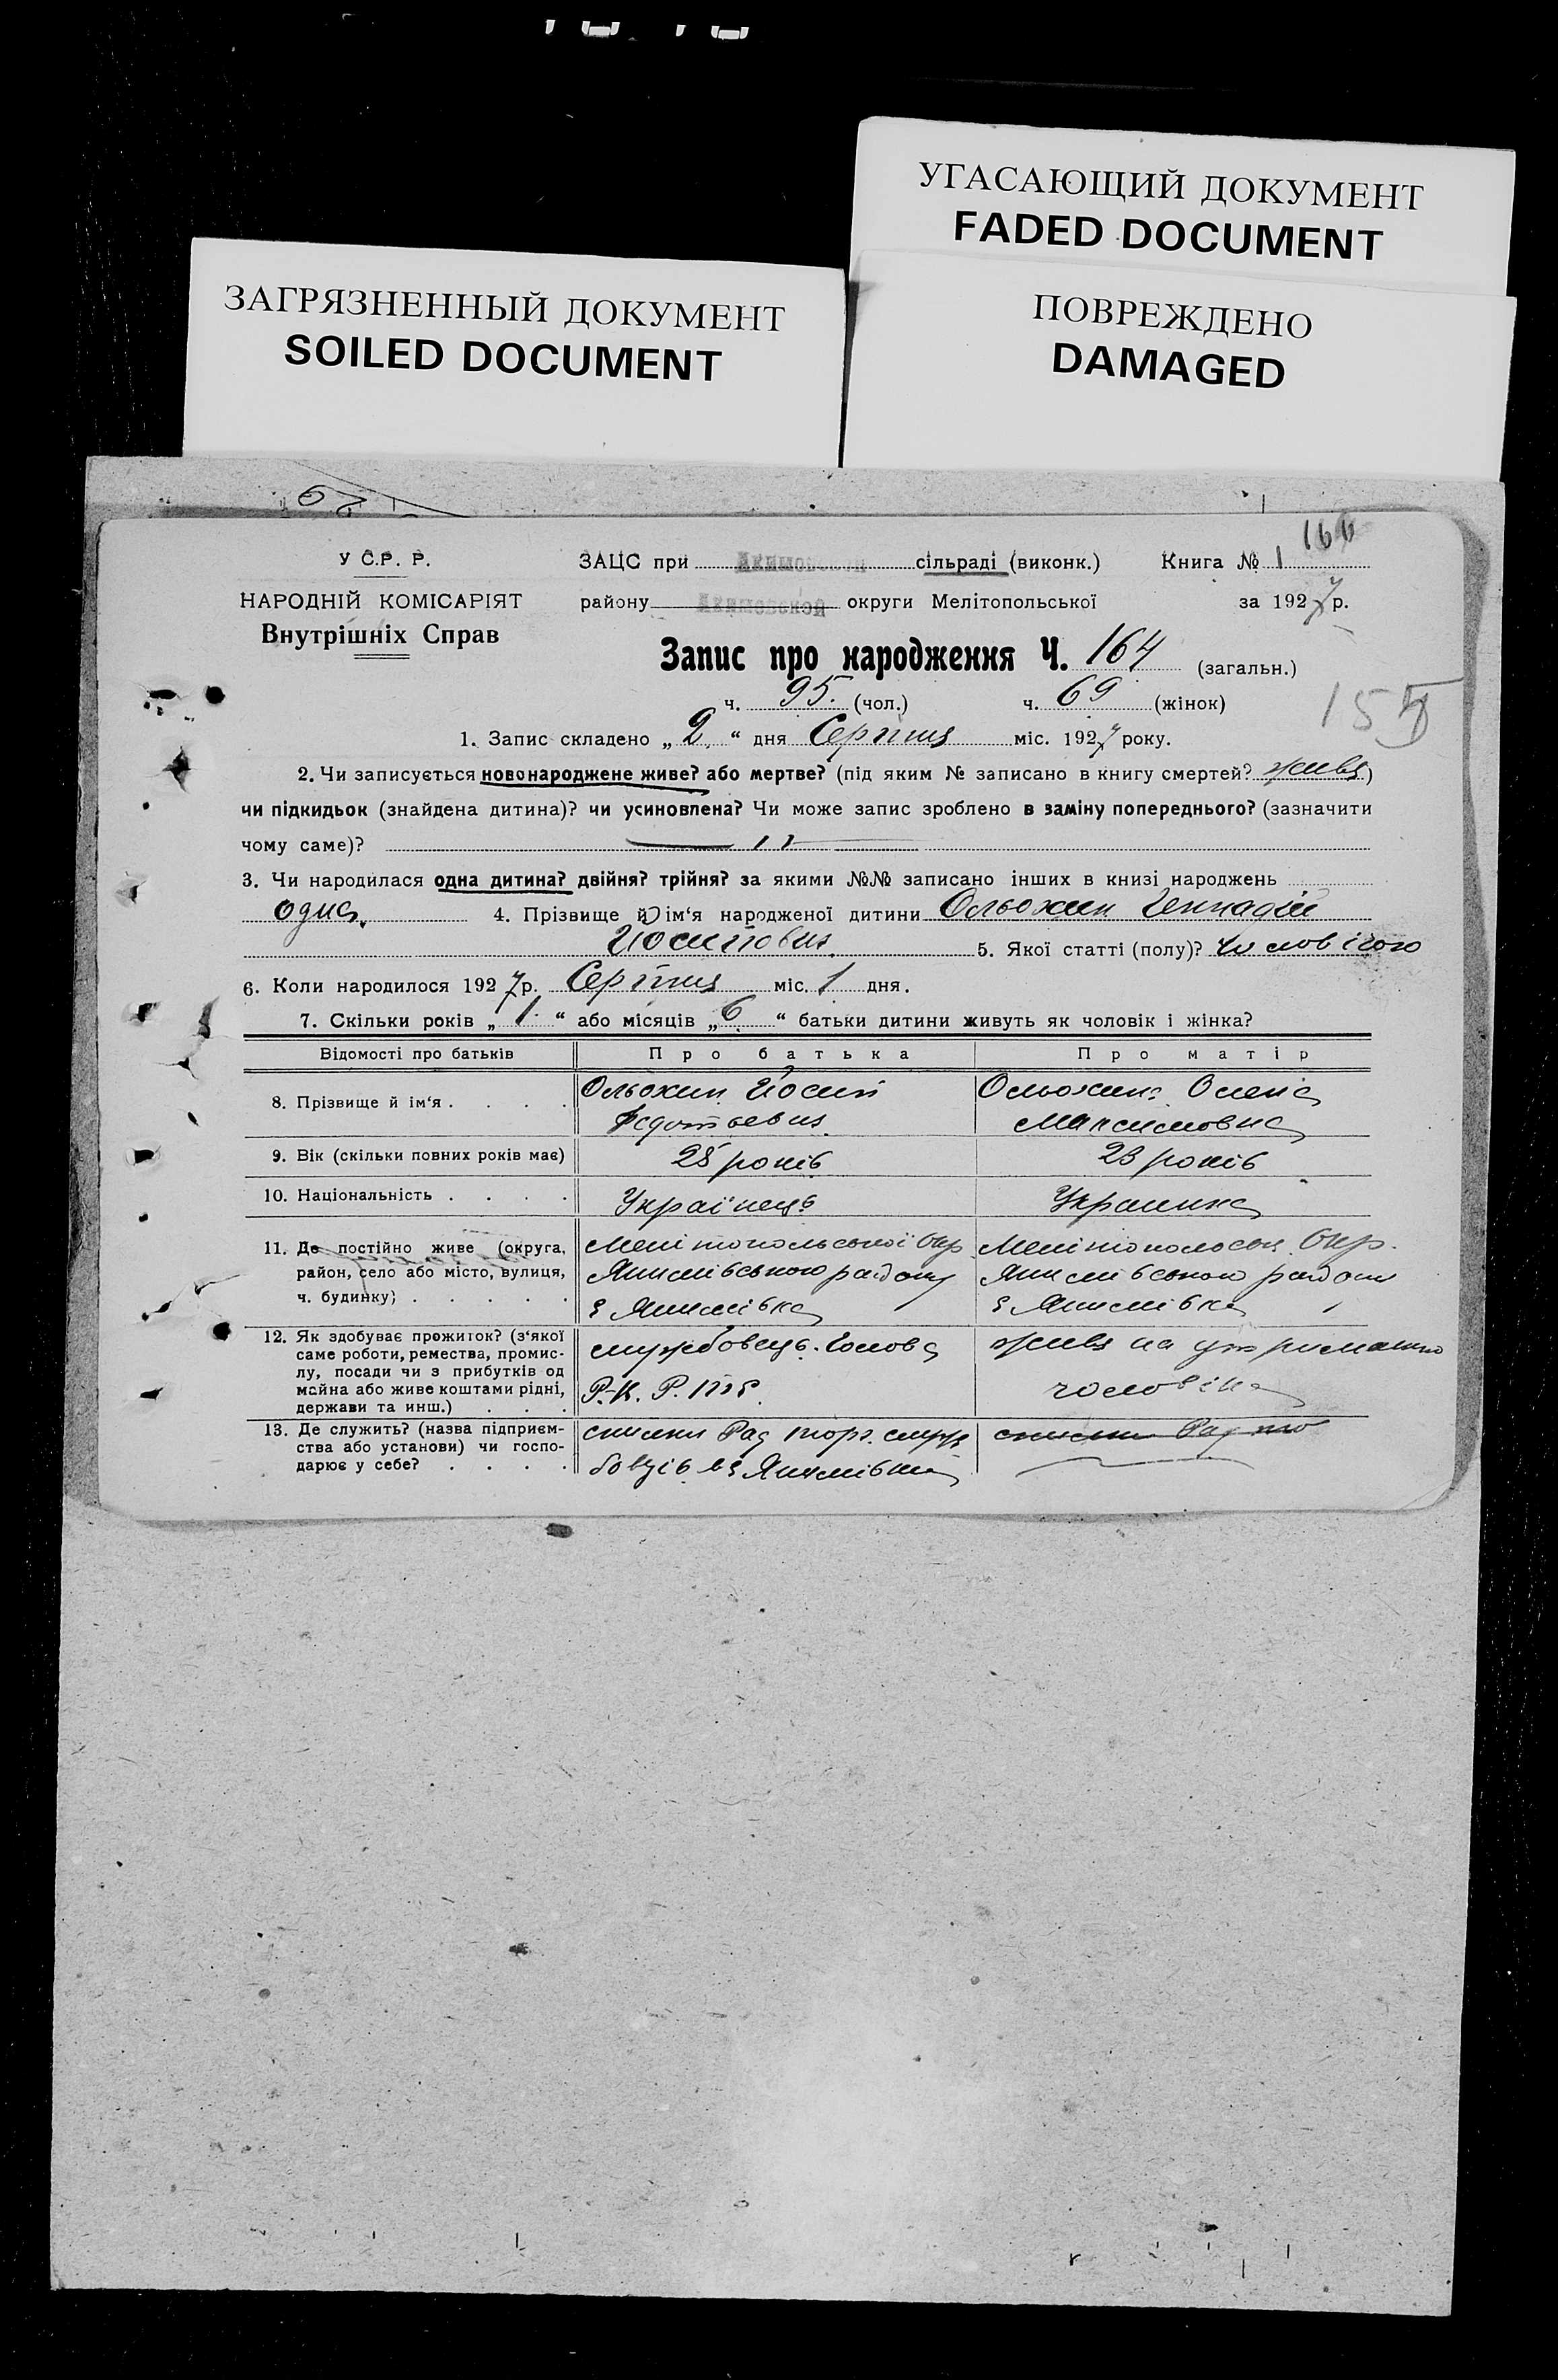 УГАСАЮЩИЙ ДОКУМЕНТ
FADED DOCUMENT
ЗАГРЯЗНЕННЫЙ ДОКУМЕНТ
SOILED DOCUMENT
ПОВРЕЖДЕНО
DAMAGED
У С.Р. Р.
НАРОДНІЙ КОМІСАРІЯТ
Внутрішніх Справ
ЗАЦС при сільраді (виконк.) Книга № 1
району округи Мелітопольської за 1927 р.
Запис про народження Ч. 164 (загальн.)
ч. 95. (чол.) ч. 69 (жінок)
1. Запис складено „ 2 “ дня Серпня міс. 1927 року.
2. Чи записується новонароджене живе? або мертве? (під яким № записано в книгу смертей? живе)
чи підкидьок (знайдена дитина)? чи усиновлена? Чи може запис зроблено в заміну попереднього? (зазначити
чому саме)?
3. Чи народилася одна дитина? двійня? трійня? за якими №№ записано інших в книзі народжень
одна. 4. Прізвище й ім'я народженої дитини Ольохин Геннадій
Йосипович 5. Якої статті (полу)? чоловічого
6. Коли народилося 1927 р. Серпня міс. 1 дня.
7. Скільки років „ 1 “ або місяців „ 6 “ батьки дитини живуть як чоловік і жінка?
Відомості про батьків Про батька Про матір
8. Прізвище й ім'я . . . . Ольохин Йосип Ольохина Олена
Федотьевич Максимовна
9. Вік (скільки повних років має) 25 років 23 років
10. Національність . . . . Українець Украинка
11. Де постійно живе (округа, район, село або місто, вулиця, ч. будинку) . . . . .
Мелітопольської Окр. Якимівського району с Якимівка
Мелітопольськ. Окр. Якимівського району с Якимівка
12. Як здобуває прожиток? (з'якої саме роботи, ремества, промислу, посади чи з прибутків од майна або живе коштами рідні, держави та инш.) . . .
службовець. Голова
живе на утриманню чоловіка
13. Де служить? (назва підприємства або установи) чи господарює у себе? . . . .
спилки Рад торг. службовців в с Якимівка